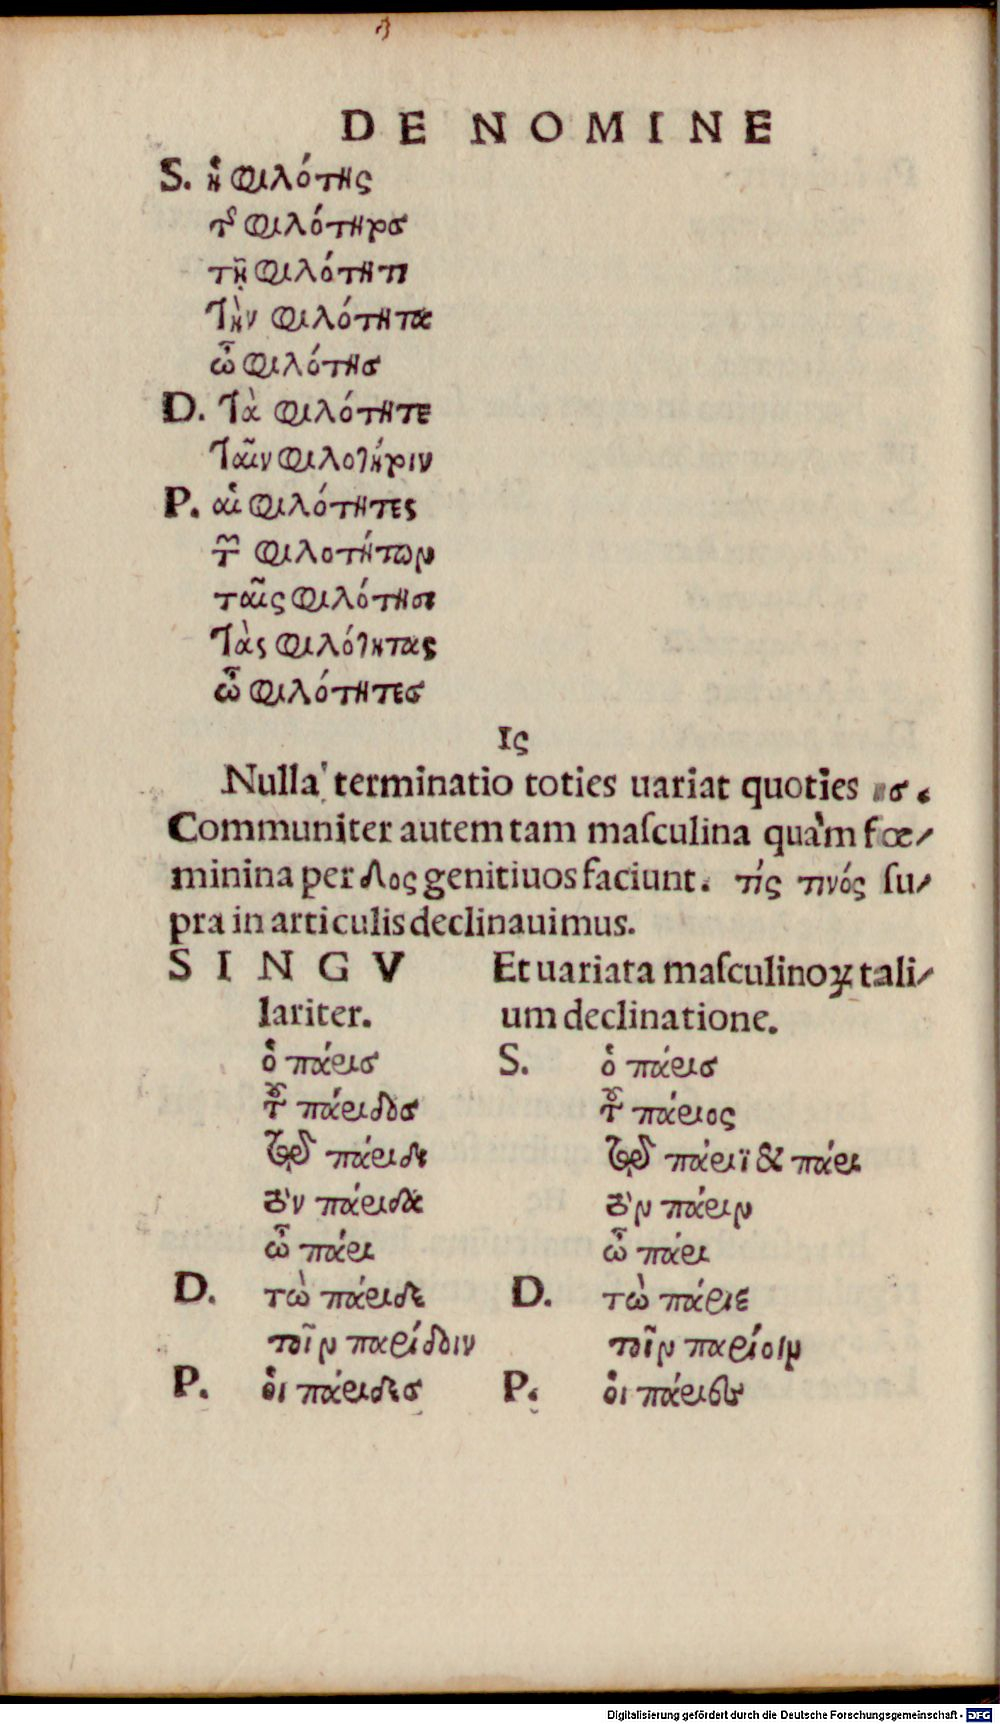 DE NOMINE
S. ἡ φιλότης
τȣ͂ φιλότητος
τῇ φιλότητι
τὴν φιλότητα
ὦ φιλότης
D. τὰ φιλότητε
ταῖν φιλοτήτοιν
P. αἱ φιλότητες
τῶν φιλοτήτων
ταῖς φιλότησι
τὰς φιλότητας
ὦ φιλότητες
Ις
Nulla terminatio toties uariat quoties ις.
Communiter autem tam maſculina quàm fœ-
minina per δος genitiuos faciunt. τίς τινός ſu-
pra in articulis declinauimus.
SINGV
lariter.
ὁ πάρις
τȣ͂ πάριδος
τῷ πάριδι
τὸν πάριδα
ὦ πάρι
D. τὼ πάριδε
τοῖν παρίδοιν
P. οἱ πάριδες
Et uariata maſculinoꝝ tali-
um declinatione.
S. ὁ πάρις
τȣ͂ πάριος
τῷ πάριϊ & πάρι
τὸν πάριν
ὦ πάρι
D. τὼ πάριε
τοῖν παρίοιν
P. οἱ πάριες
Digitalisierung gefördert durch die Deutsche Forschungsgemeinschaft - DFG